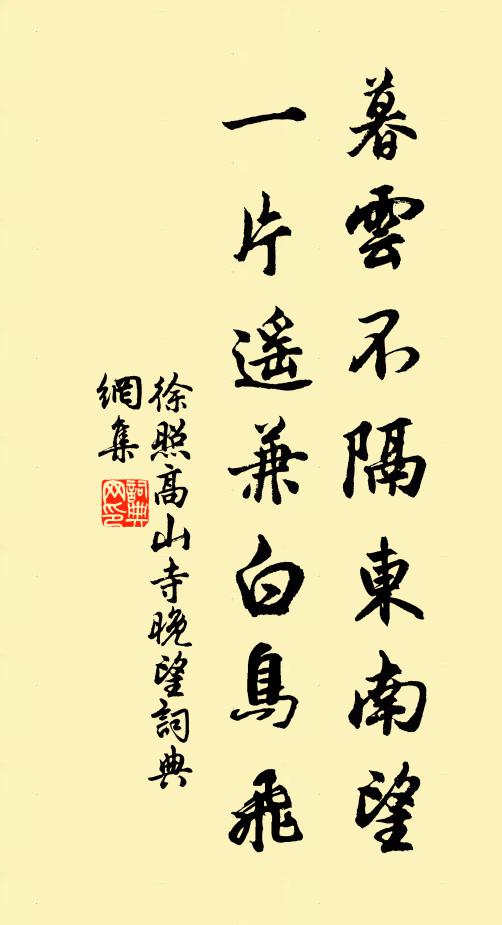 暮雲不隔東南望
一片遥兼白鳥飛
徐照高山寺晚望詞典
網集
詞典
网印